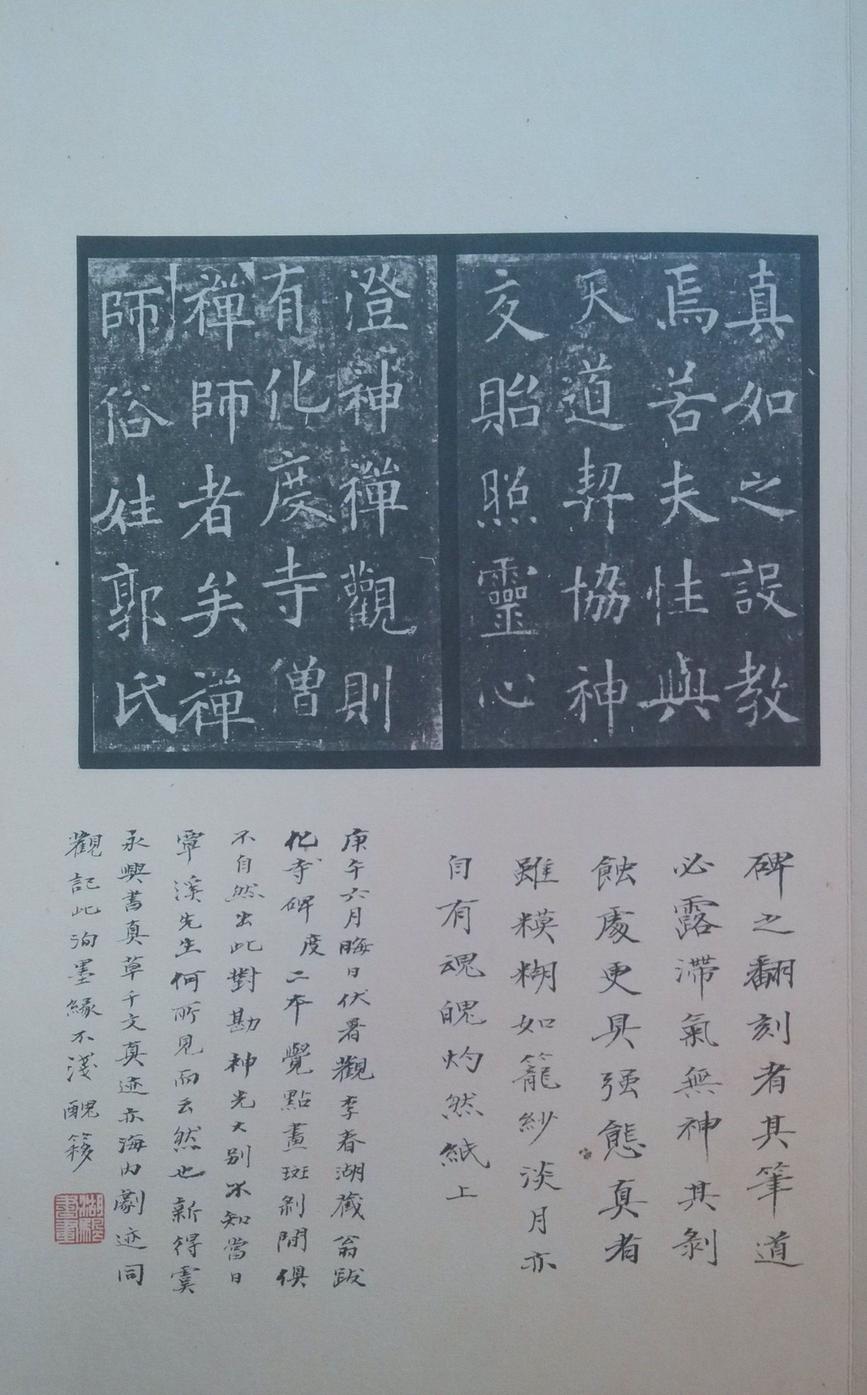 真如之設教
焉若夫性與
天道契協神
交貽照靈心
澄神禪觀則
有化度寺僧
禪師者矣禪
師俗姓郭氏
碑之翻刻者其筆道
必露滯氣無神其剝
蝕處更具强態真者
雖糢糊如籠紗淡月亦
自有魂魄灼然紙上
庚午六月晦日伏暑觀李春湖藏翁跋
化寺碑度二本覺點畫斑剝間俱
不自然出此對勘神光大別不知當日
覃溪先生何所見而云然也新得虞
永興書真草千文真迹亦海內劇迹同
觀記此洵墨緣不淺醜簃